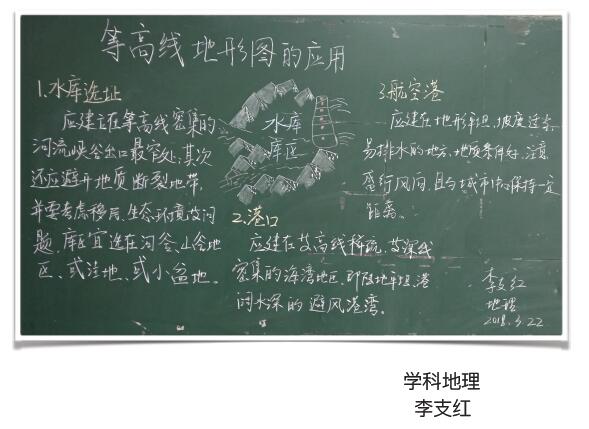 等高线地形图的应用
1.水库选址
应建立在等高线密集的
河流峡谷出口最窄处,其次
还应避开地质断裂地带,
并要考虑移民、生态环境等问
题。库区宜选在河谷、山谷地
区、或洼地、或小盆地。
水库
库区
2.港口
应建在等高线稀疏,等深线
密集的海湾地区,即陆地平坦,港
阔水深的避风港湾。
3.航空港
应建在地形平坦,坡度适宜,
易排水的地方,地质条件好,注意
盛行风向,且与城市中心保持一定
距离。
李支红
地理
2018.3.22
学科地理
李支红